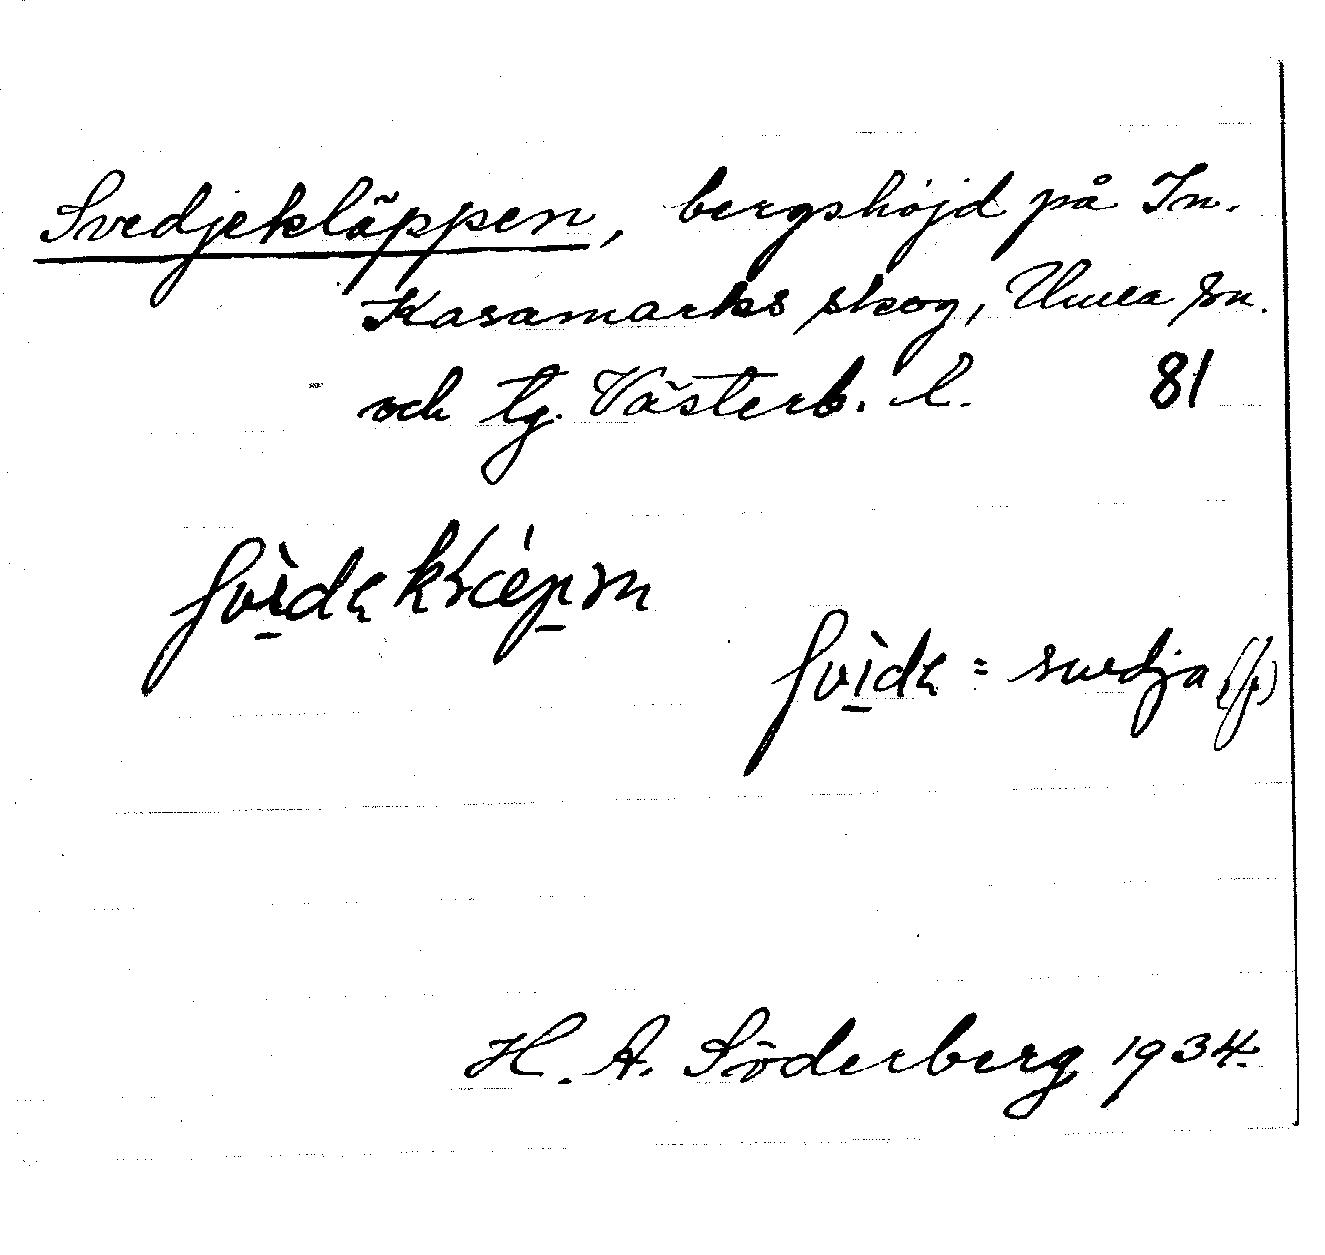 Svedjekläppen, bergshöjd på In.
Kasamarks skog, Umea sn.
och tg. Västerb. l. 81
= svedja (f.)
H. A. Söderberg 1934.